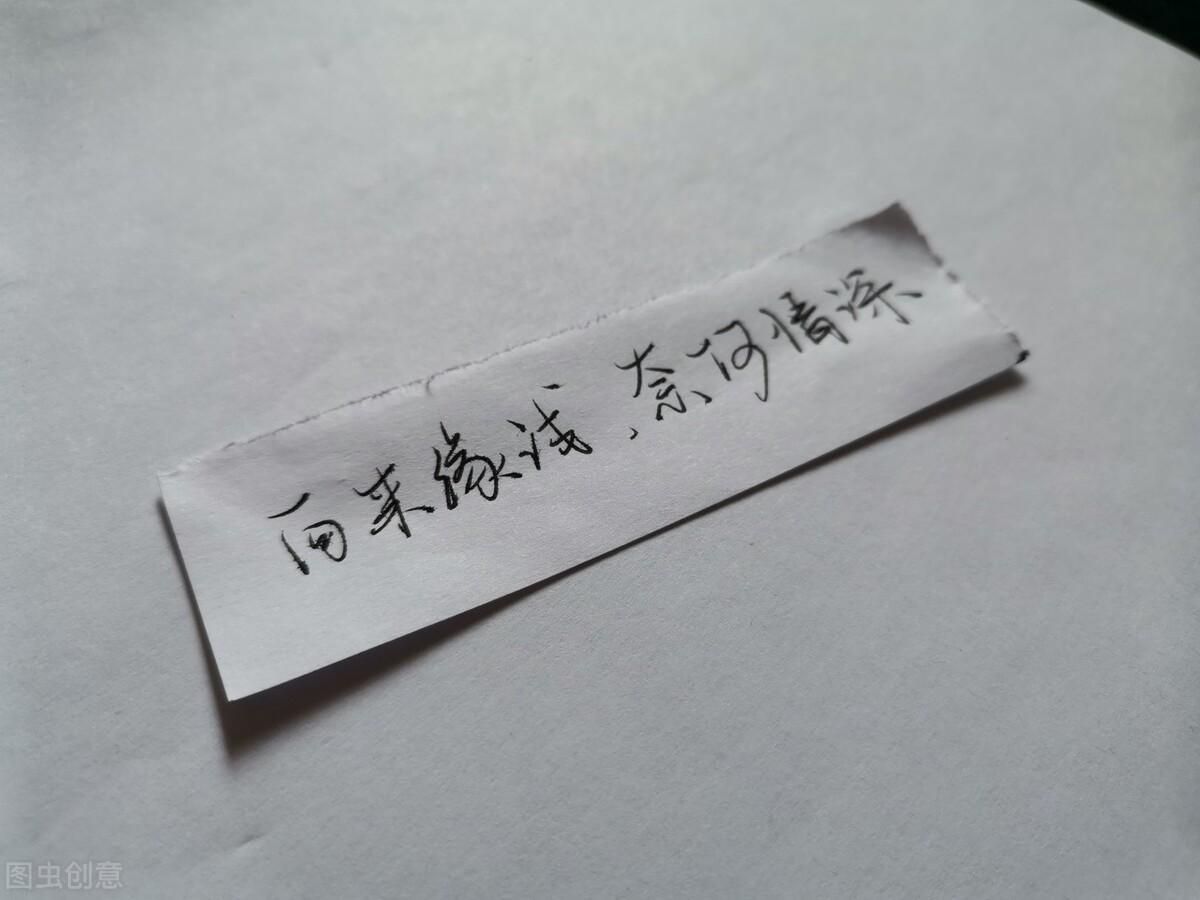 向来缘浅、奈何情深
图虫创意